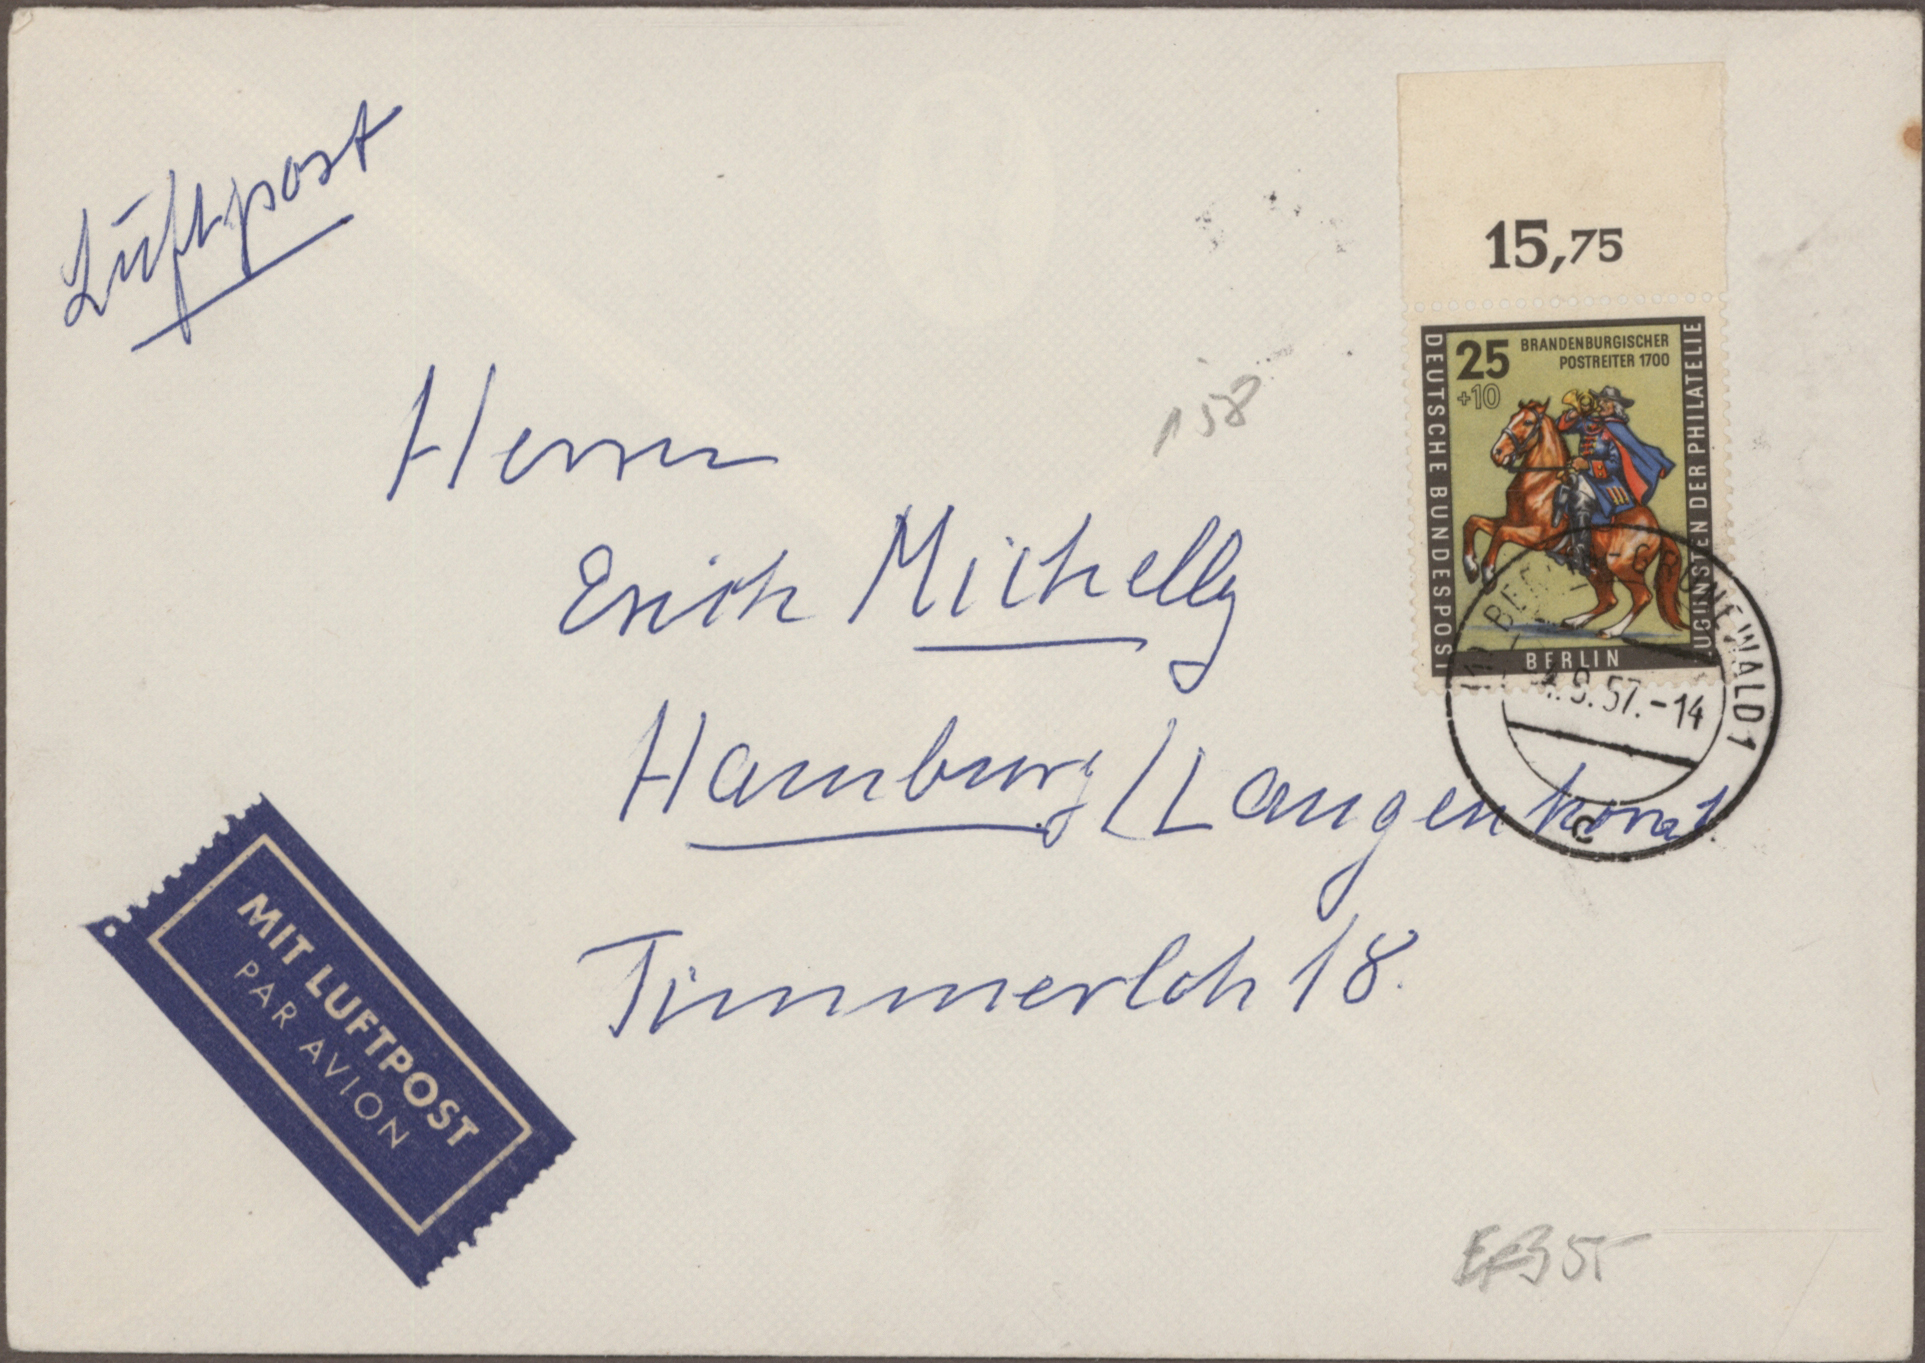 Luftpost
15,75
25 BRANDENBURGISCHER
+10 POSTREITER 1700
DEUTSCHE BUNDESPOST
ZUGUNSTEN DER PHILATELIE
BERLIN
BERLIN-GRUNEWALD 1
9.57.-14
c
158
Herrn
Erich Michelly
Hamburg/Langenhorst
Timmerloh 18.
MIT LUFTPOST
PAR AVION